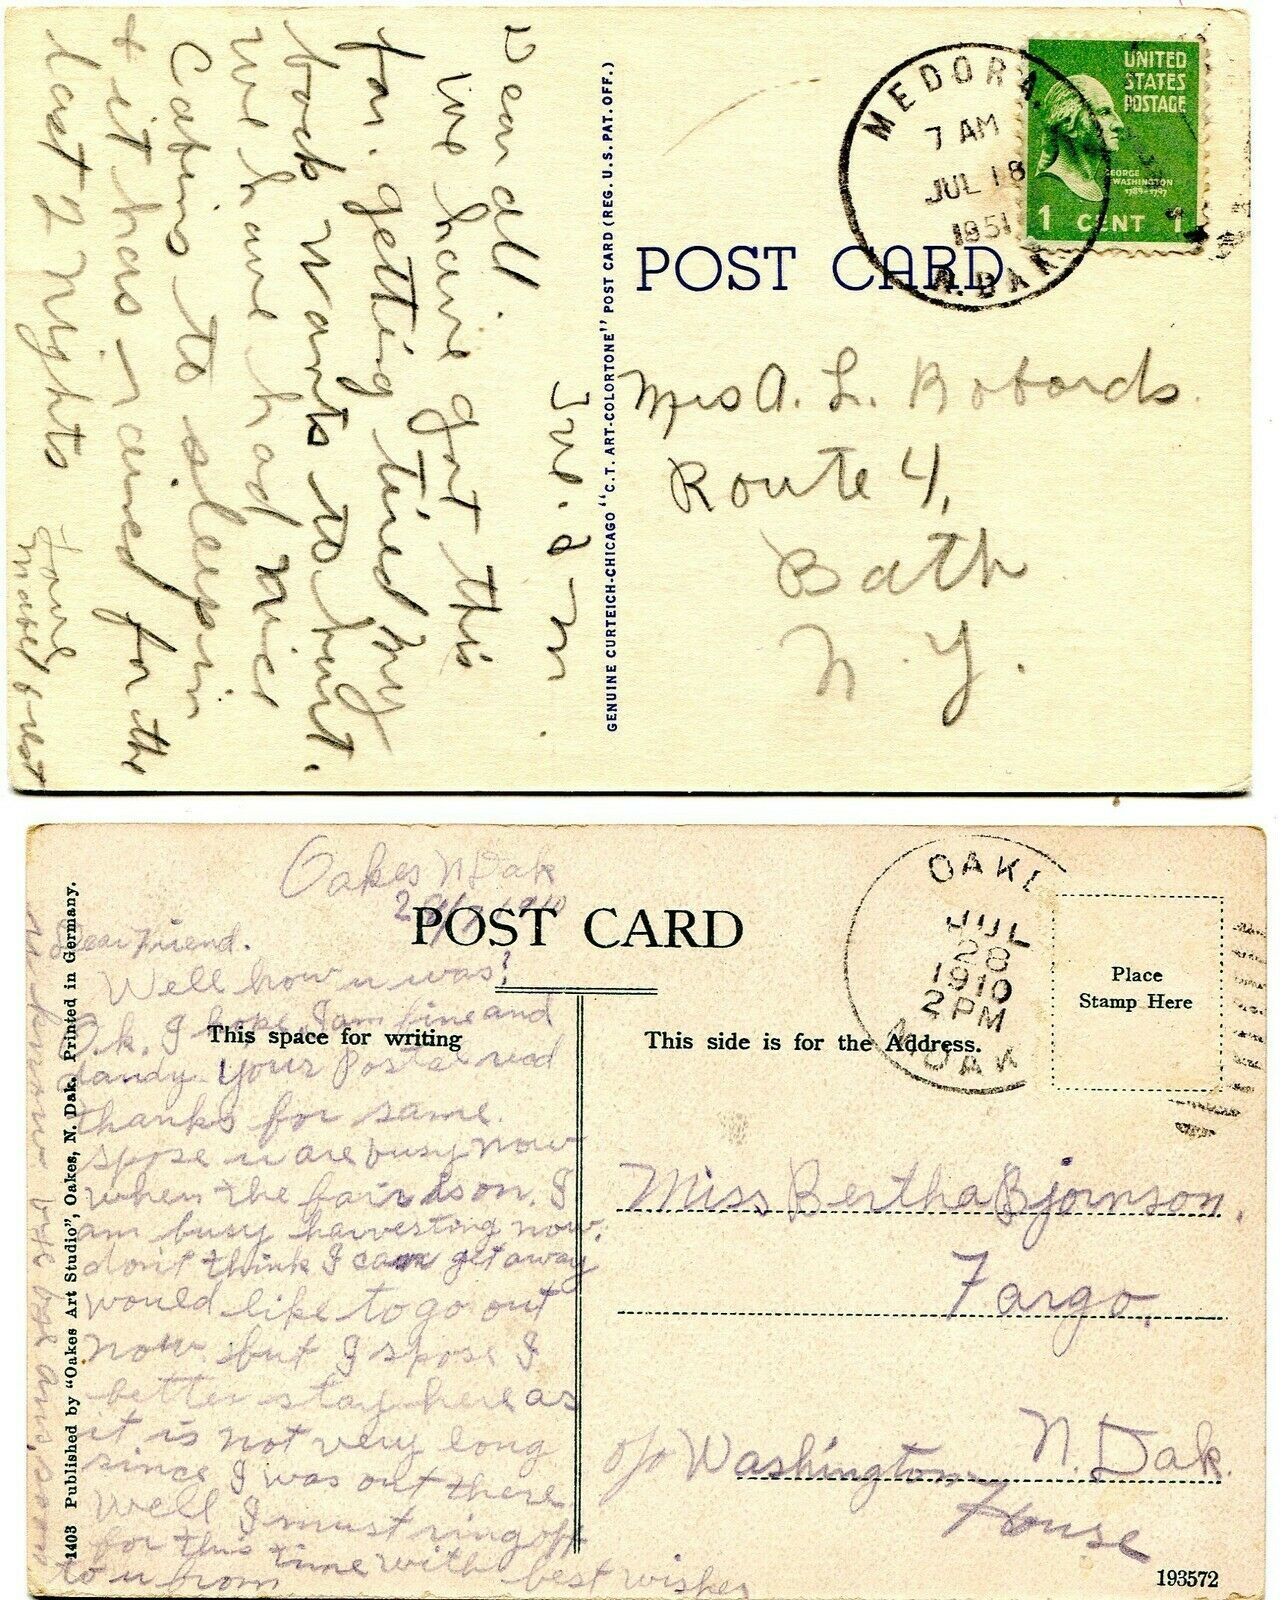 Dear all.
We have got this
far. getting tired my
back wants to hurt.
We have had nice
Cabins to sleep in
& it has rained for the
last 2 nights
Love
Mabel & rest
GENUINE CURTEICH-CHICAGO "C.T. ART-COLORTONE" POST CARD (REG. U.S. PAT. OFF.)
POST CARD
MEDORA.
7 AM
JUL 18
1951
N. DAK.
UNITED
STATES
POSTAGE
GEORGE
WASHINGTON
1789-1797
1 CENT 1
Mrs A. L. Robards.
Route 4,
Bath
N. Y.
Oakes N Dak
1910
POST CARD
Dear Friend.
Well how u was?
O.k. I hope. I am fine and
dandy. Your Postal recd
thanks for same.
spose u are busy now
when the fair is on. I
am busy harvesting now.
dont think I can get away
would like to go out
now. but I spose I
better stay here as
it is not very long
since I was out there
Well I must ring off
for this time with best wishes
to u from
This space for writing
1403 Published by "Oakes Art Studio", Oakes, N. Dak. Printed in Germany.
This side is for the Address.
OAKE
JUL
28
1910
2 PM
N DAK
Place
Stamp Here
Miss Bertha Bjornson.
Fargo.
N. Dak.
c/o Washington
House
193572